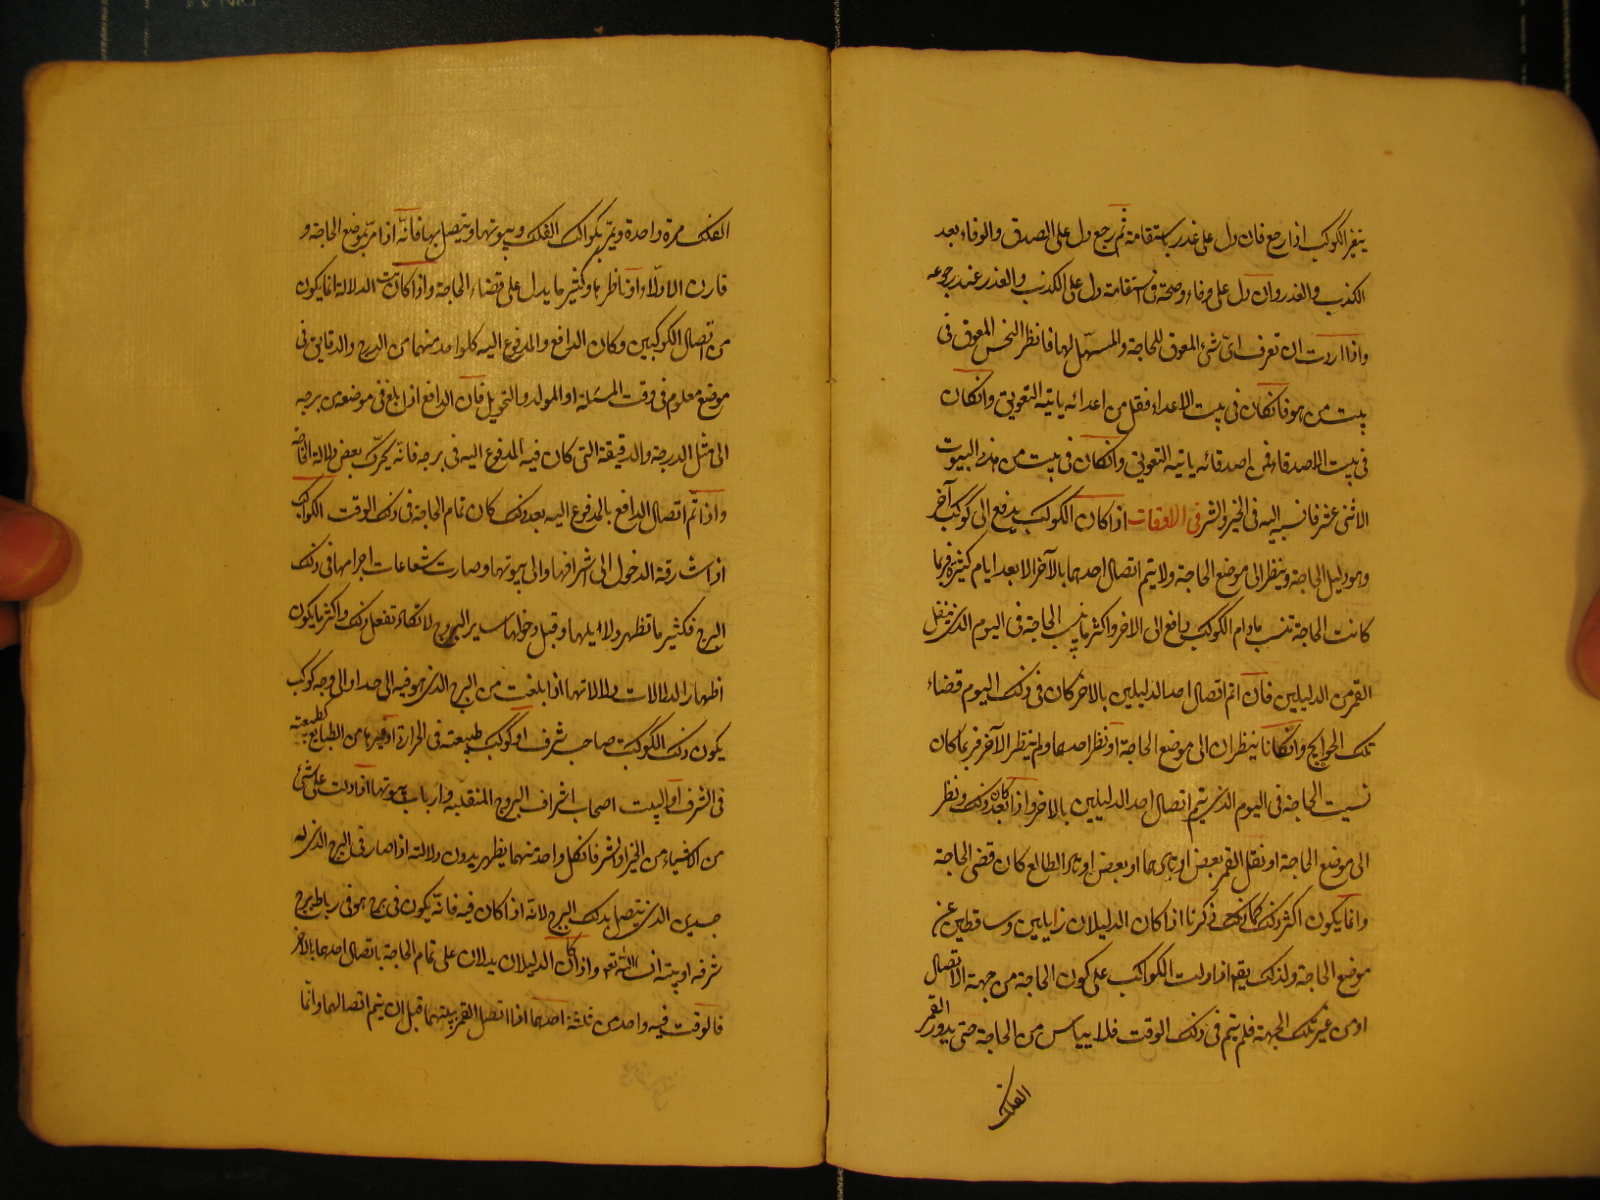 يتغير الكوكب اذا رجع فان دل على غدر باستقامته ثم رجع دل على الصدق والوفاء بعد
الكذب والغدر وان دل على وفاء وصحة فى استقامته دل على الكذب والغدر عند رجوعه
واذا اردت ان تعرف اىّ شئ المعوق للحاجة والمسهّل لها فانظر النحس المعوق فى
بيت من هو فانكان فى بيت الاعداء فقل من اعدائه ياتيه التعويق وانكان
فى بيت الاصدقاء فمن اصدقائه ياتيه التعويق وانكان فى بيت من هذه البيوت
الاثنى عشر فانسبه اليه فى الخير والشر فى الاوقات اذا كان الكوكب يدفع الى كوكب آخر
وهو دليل الحاجة وينظر الى موضع الحاجة ولا يتم اتصال احدهما بالآخر الا بعد ايام كثيرة فربما
كانت الحاجة مادام الكوكب يدافع الى الاخر واكثر الحاجة فى اليوم الذى ينتقل
القمر من الدليلين فان اتم اتصال احد الدليلين بالاخر كان فى ذلك اليوم قضاء
تلك الحوايج وانكانا ينظران الى موضع الحاجة او نظر احدهما ولم ينظر الآخر فربما كان
الحاجة فى اليوم الذى يتم اتصال احد الدليلين بالاخر واذا كان بعد ذلك ونظر
الى موضع الحاجة او نقل القمر بعض اوتادهما او بعض اوتاد الطالع كان قضى الحاجة
وانما يكون اكثر ذلك كما ذكرنا اذا كان الدليلان زايلين وساقطين عن
موضع الحاجة ولذلك اذا دلت الكواكب على كون الحاجة من جهة الاتصال
او من غير تلك الجهة فلم يتم فى ذلك الوقت فلا ييأس من الحاجة حتى يدور القمر
الفلك
الفلك مرة واحدة ويمرّ بكواكب الفلك وبيوتها ويتصل بها فانّه اذا مرّ بموضع الحاجة و
قارن الادلّاء او ناظرها وكثير ما يدل على قضاء الحاجة واذا كانت الدلالة انما يكون
من اتصال الكوكبين وكان الدافع والمدفوع اليه كل واحد منهما من الدرج والدقايق فى
موضع معلوم فى وقت المسئلة او المولد والتحويل فان الدافع اذا بلغ فى موضعه من برجه
الى مثل الدرجة والدقيقة التى كان فيه المدفوع اليه فى برجه فانّه يحرّك بعض دلالة
واذا تم اتصال الدافع بالمدفوع اليه بعد ذلك كان تمام الحاجة فى ذلك الوقت الكواكب
اذا شارفة الدخول الى اشرافها والى بيوتها وصارت شعاعات اجرامها فى ذلك
البرج فكثير ما تظهر دلايلها وقبل دخولها ساير البروج لا تكاد تفعل ذلك واكثر ما يكون
اظهار الدلالات دلالاتها اذا بلغت من البرج الذى هو فيه الى حد او الى وجه كوكب
يكون ذلك الكوكب صاحب شرف او كوكب طبيعته فى الحرارة او غيرها من الطبايع كطبيعته
فى الشرف او البيت اصحاب اشراف البروج المنقلبة وارباب بيوتها اذا دلت على شئ
من الاشياء من الخير او الشر فانّ كل واحد منهما يظهر بدون دلالته اذا صار فى البرج الذى له
الذى يتصل بذلك البرج لانّه اذا كان فيه فانّه يكون فى برج هو فى رباط برج
شرفه او بيته ان شاء الله تعم واذا كان الدليلان يدلان على تمام الحاجة باتصال احدهما بالاخر
فالوقت فيه واحد من ثلثة احدهما اذا اتصل القمر بينهما قبل ان يتم اتصالهما وامّا